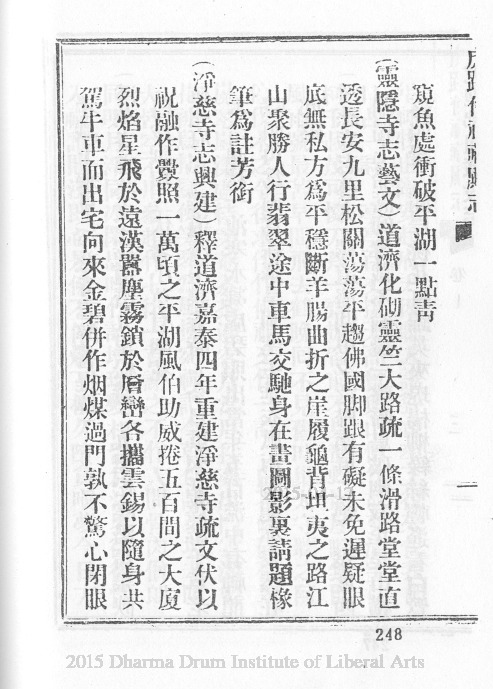 窺魚處衝破平湖一點靑
(靈隱寺志藝文)道濟化砌靈竺大路疏一條滑路堂堂直
透長安九里松關蕩蕩平趨佛國脚跟有礙未免遲疑眼
底無私方爲平穩斷羊腸曲折之崖履龜背坦夷之路江
山聚勝人行翡翠途中車馬交馳身在畫圖影裏請題椽
筆爲註芳銜
(淨慈寺志興建)釋道濟嘉泰四年重建淨慈寺疏文伏以
祝融作釁照一萬頃之平湖風伯助威捲五百間之大廈
烈焰星飛於遠漢囂塵霧鎖於層巒各攜雲錫以隨身共
駕牛車而出宅向來金碧併作烟煤過門孰不驚心閉眼
248
2015 Dharma Drum Institute of Liberal Arts